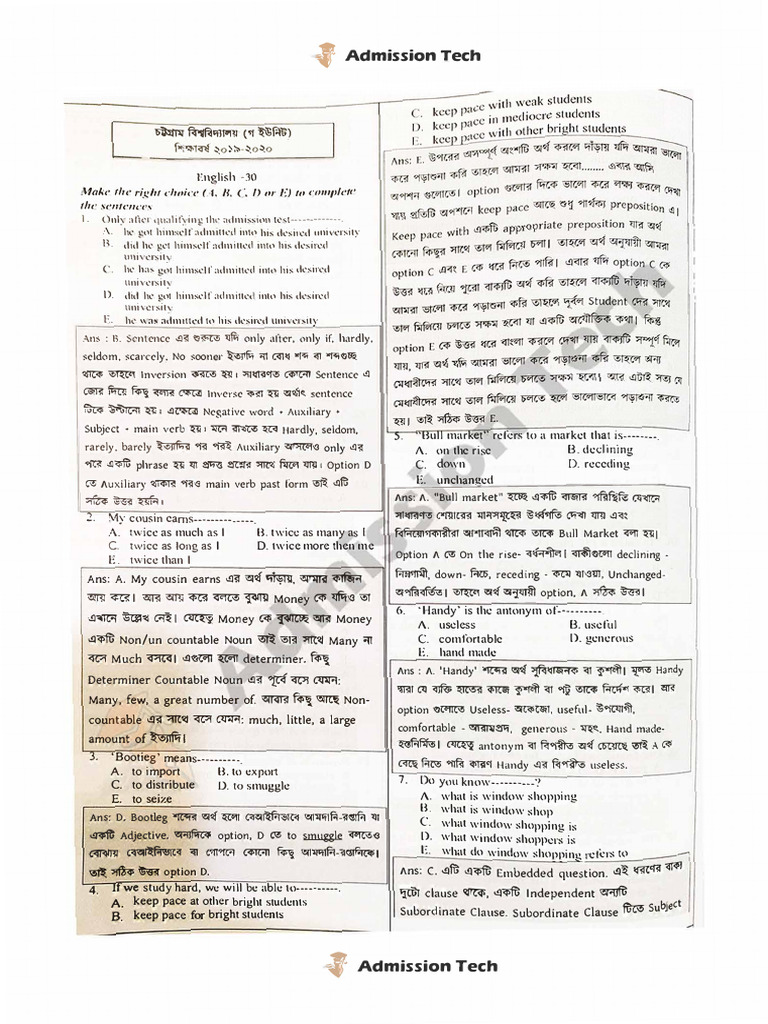 Admission Tech
চট্টগ্রাম বিশ্ববিদ্যালয় (গ ইউনিট)
শিক্ষাবর্ষ ২০১৯-২০২০
English -30
Make the right choice (A, B, C, D or E) to complete
the sentences
1. Only after qualifying the admission test------------.
A. he got himself admitted into his desired university
B. did he get himself admitted into his desired
university
C. he has got himself admitted into his desired
university
D. did he got himself admitted into his desired
university
E. he was admitted to his desired university
Ans : B. Sentence এর শুরুতে যদি only after, only if, hardly,
seldom, scarcely, No sooner ইত্যাদি না বোধ শব্দ বা শব্দগুচ্ছ
থাকে তাহলে Inversion করতে হয়। সাধারণত কোনো Sentence এ
জোর দিয়ে কিছু বলার ক্ষেত্রে Inverse করা হয় অর্থাৎ sentence
টিকে উল্টানো হয়। এক্ষেত্রে Negative word + Auxiliary +
Subject + main verb হয়। মনে রাখতে হবে Hardly, seldom,
rarely, barely ইত্যাদির পর পরই Auxiliary আসলেও only এর
পরে একটি phrase হয় যা প্রদত্ত প্রশ্নের সাথে মিলে যায়। Option D
তে Auxiliary থাকার পরও main verb past form তাই এটি
সঠিক উত্তর হয়নি।
2. My cousin earns-------------.
A. twice as much as I B. twice as many as I
C. twice as long as I D. twice more then me
E. twice than I
Ans: A. My cousin earns এর অর্থ দাঁড়ায়, আমার কাজিন
আয় করে। আর আয় করে বলতে বুঝায় Money কে যদিও তা
এখানে উল্লেখ নেই। যেহেতু Money কে বুঝাচ্ছে আর Money
একটি Non/un countable Noun তাই তার সাথে Many না
বসে Much বসবে। এগুলো হলো determiner. কিছু
Determiner Countable Noun এর পূর্বে বসে যেমন:
Many, few, a great number of. আবার কিছু আছে Non-
countable এর সাথে বসে যেমন: much, little, a large
amount of ইত্যাদি।
3. ‘Bootieg’ means----------.
A. to import B. to export
C. to distribute D. to smuggle
E. to seize
Ans: D. Bootleg শব্দের অর্থ হলো বেআইনিভাবে আমদানি-রপ্তানি যা
একটি Adjective. অন্যদিকে option, D তে to smuggle বলতেও
বোঝায় বেআইনিভাবে বা গোপনে কোনো কিছু আমদানি-রপ্তানিকে।
তাই সঠিক উত্তর option D.
4. If we study hard, we will be able to----------.
A. keep pace at other bright students
B. keep pace for bright students
C. keep pace with weak students
D. keep pace in mediocre students
E. keep pace with other bright students
Ans: E. উপরের অসম্পূর্ণ অংশটি অর্থ করলে দাঁড়ায় যদি আমরা ভালো
করে পড়াশুনা করি তাহলে আমরা সক্ষম হবো........ এবার আমি
অপশন গুলোতে। option গুলোর দিকে ভালো করে লক্ষ্য করলে দেখা
যায় প্রতিটি অপশনে keep pace আছে শুধু পার্থক্য preposition এ।
Keep pace with একটি appropriate preposition যার অর্থ
কোনো কিছুর সাথে তাল মিলিয়ে চলা। তাহলে অর্থ অনুযায়ী আমরা
option C এবং E কে ধরে নিতে পারি। এবার যদি option C কে
উত্তর ধরে নিয়ে পুরো বাক্যটি অর্থ করি তাহলে বাক্যটি দাঁড়ায় যদি
আমরা ভালো করে পড়াশুনা করি তাহলে দুর্বল Student দের সাথে
তাল মিলিয়ে চলতে সক্ষম হবো যা একটি অযৌক্তিক কথা। কিন্তু
option E কে উত্তর ধরে বাংলা করলে দেখা যায় বাক্যটি সম্পূর্ণ মিলে
যায়, যার অর্থ যদি আমরা ভালো করে পড়াশুনা করি তাহলে অন্য
মেধাবীদের সাথে তাল মিলিয়ে চলতে সক্ষম হবো। আর এটাই সত্য যে
মেধাবীদের সাথে তাল মিলিয়ে চলতে হলে ভালোভাবে পড়াশুনা করতে
হয়। তাই সঠিক উত্তর E.
5. “Bull market” refers to a market that is--------.
A. on the rise B. declining
C. down D. receding
E. unchanged
Ans: A. "Bull market" হচ্ছে একটি বাজার পরিস্থিতি যেখানে
সাধারণত শেয়ারের মানসমূহের উর্ধ্বগতি দেখা যায় এবং
বিনিয়োগকারীরা আশাবাদী থাকে তাকে Bull Market বলা হয়।
Option A তে On the rise- বর্ধনশীল। বাকীগুলো declining -
নিম্নগামী, down- নিচে, receding - কমে যাওয়া, Unchanged-
অপরিবর্তিত। তাহলে অর্থ অনুযায়ী option, A সঠিক উত্তর।
6. ‘Handy’ is the antonym of----------.
A. useless B. useful
C. comfortable D. generous
E. hand made
Ans : A. 'Handy' শব্দের অর্থ সুবিধাজনক বা কুশলী। মূলত Handy
দ্বারা যে ব্যক্তি হাতের কাজে কুশলী বা পটু তাকে নির্দেশ করে। আর
option গুলোতে Useless- অকেজো, useful- উপযোগী,
comfortable - আরামপ্রদ, generous - মহৎ, Hand made-
হস্তনির্মিত। যেহেতু antonym বা বিপরীত অর্থ চেয়েছে তাই A কে
বেছে নিতে পারি কারণ Handy এর বিপরীত useless.
7. Do you know----------?
A. what is window shopping
B. what is window shop
C. what window shopping is
D. what window shoppers is
E. what do window shopping refers to
Ans: C. এটি একটি Embedded question. এই ধরণের বাক্য
দুটো clause থাকে, একটি Independent অন্যটি
Subordinate Clause. Subordinate Clause টিতে Subject
Admission Tech
Admission Tech